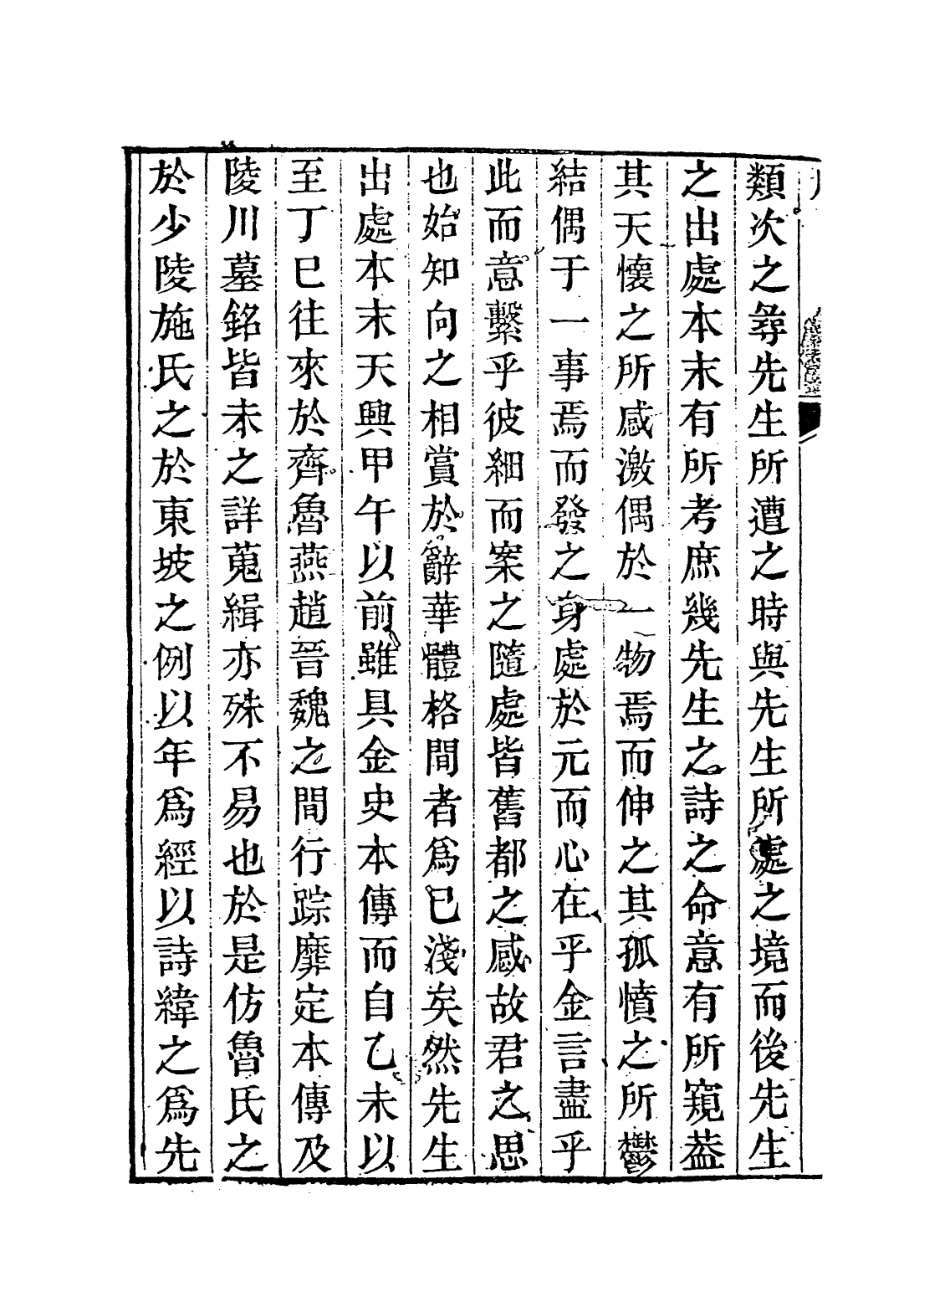 類次之尋先生所遭之時與先生所處之境而後先生
之出處本末有所考庶幾先生之詩之命意有所窺葢
其天懷之所感激偶於一物焉而伸之其孤憤之所鬱
結偶于一事焉而發之身處於元而心在乎金言盡乎
此而意繫乎彼細而案之隨處皆舊都之感故君之思
也始知向之相賞於辭華體格間者爲已淺矣然先生
出處本末天興甲午以前雖具金史本傳而自乙未以
至丁巳往來於齊魯燕趙晉魏之間行踪靡定本傳及
陵川墓銘皆未之詳蒐緝亦殊不易也於是仿魯氏之
於少陵施氏之於東坡之例以年爲經以詩緯之爲先